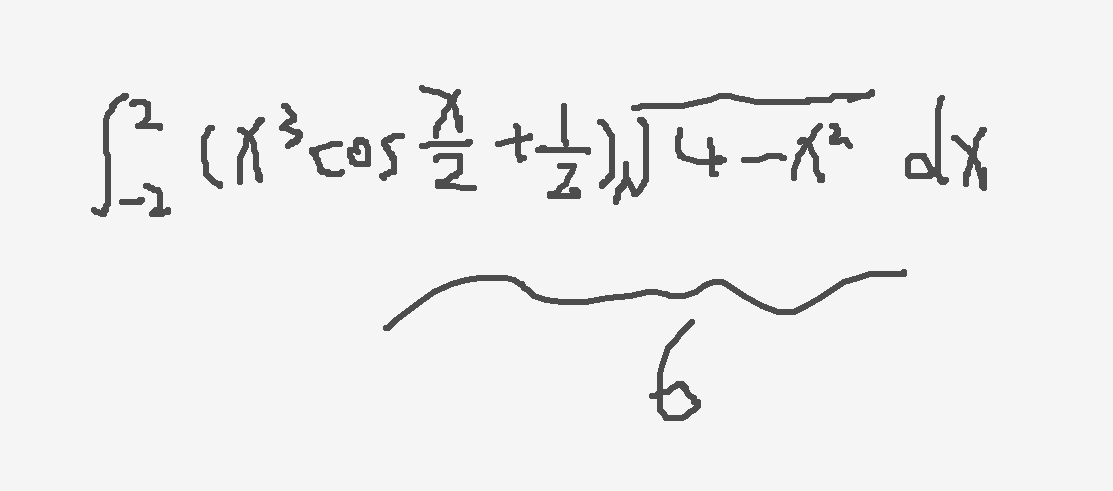 ∫_{-2}^{2} (x³ cos x/2 + 1/2) √(4 - x²) dx
6